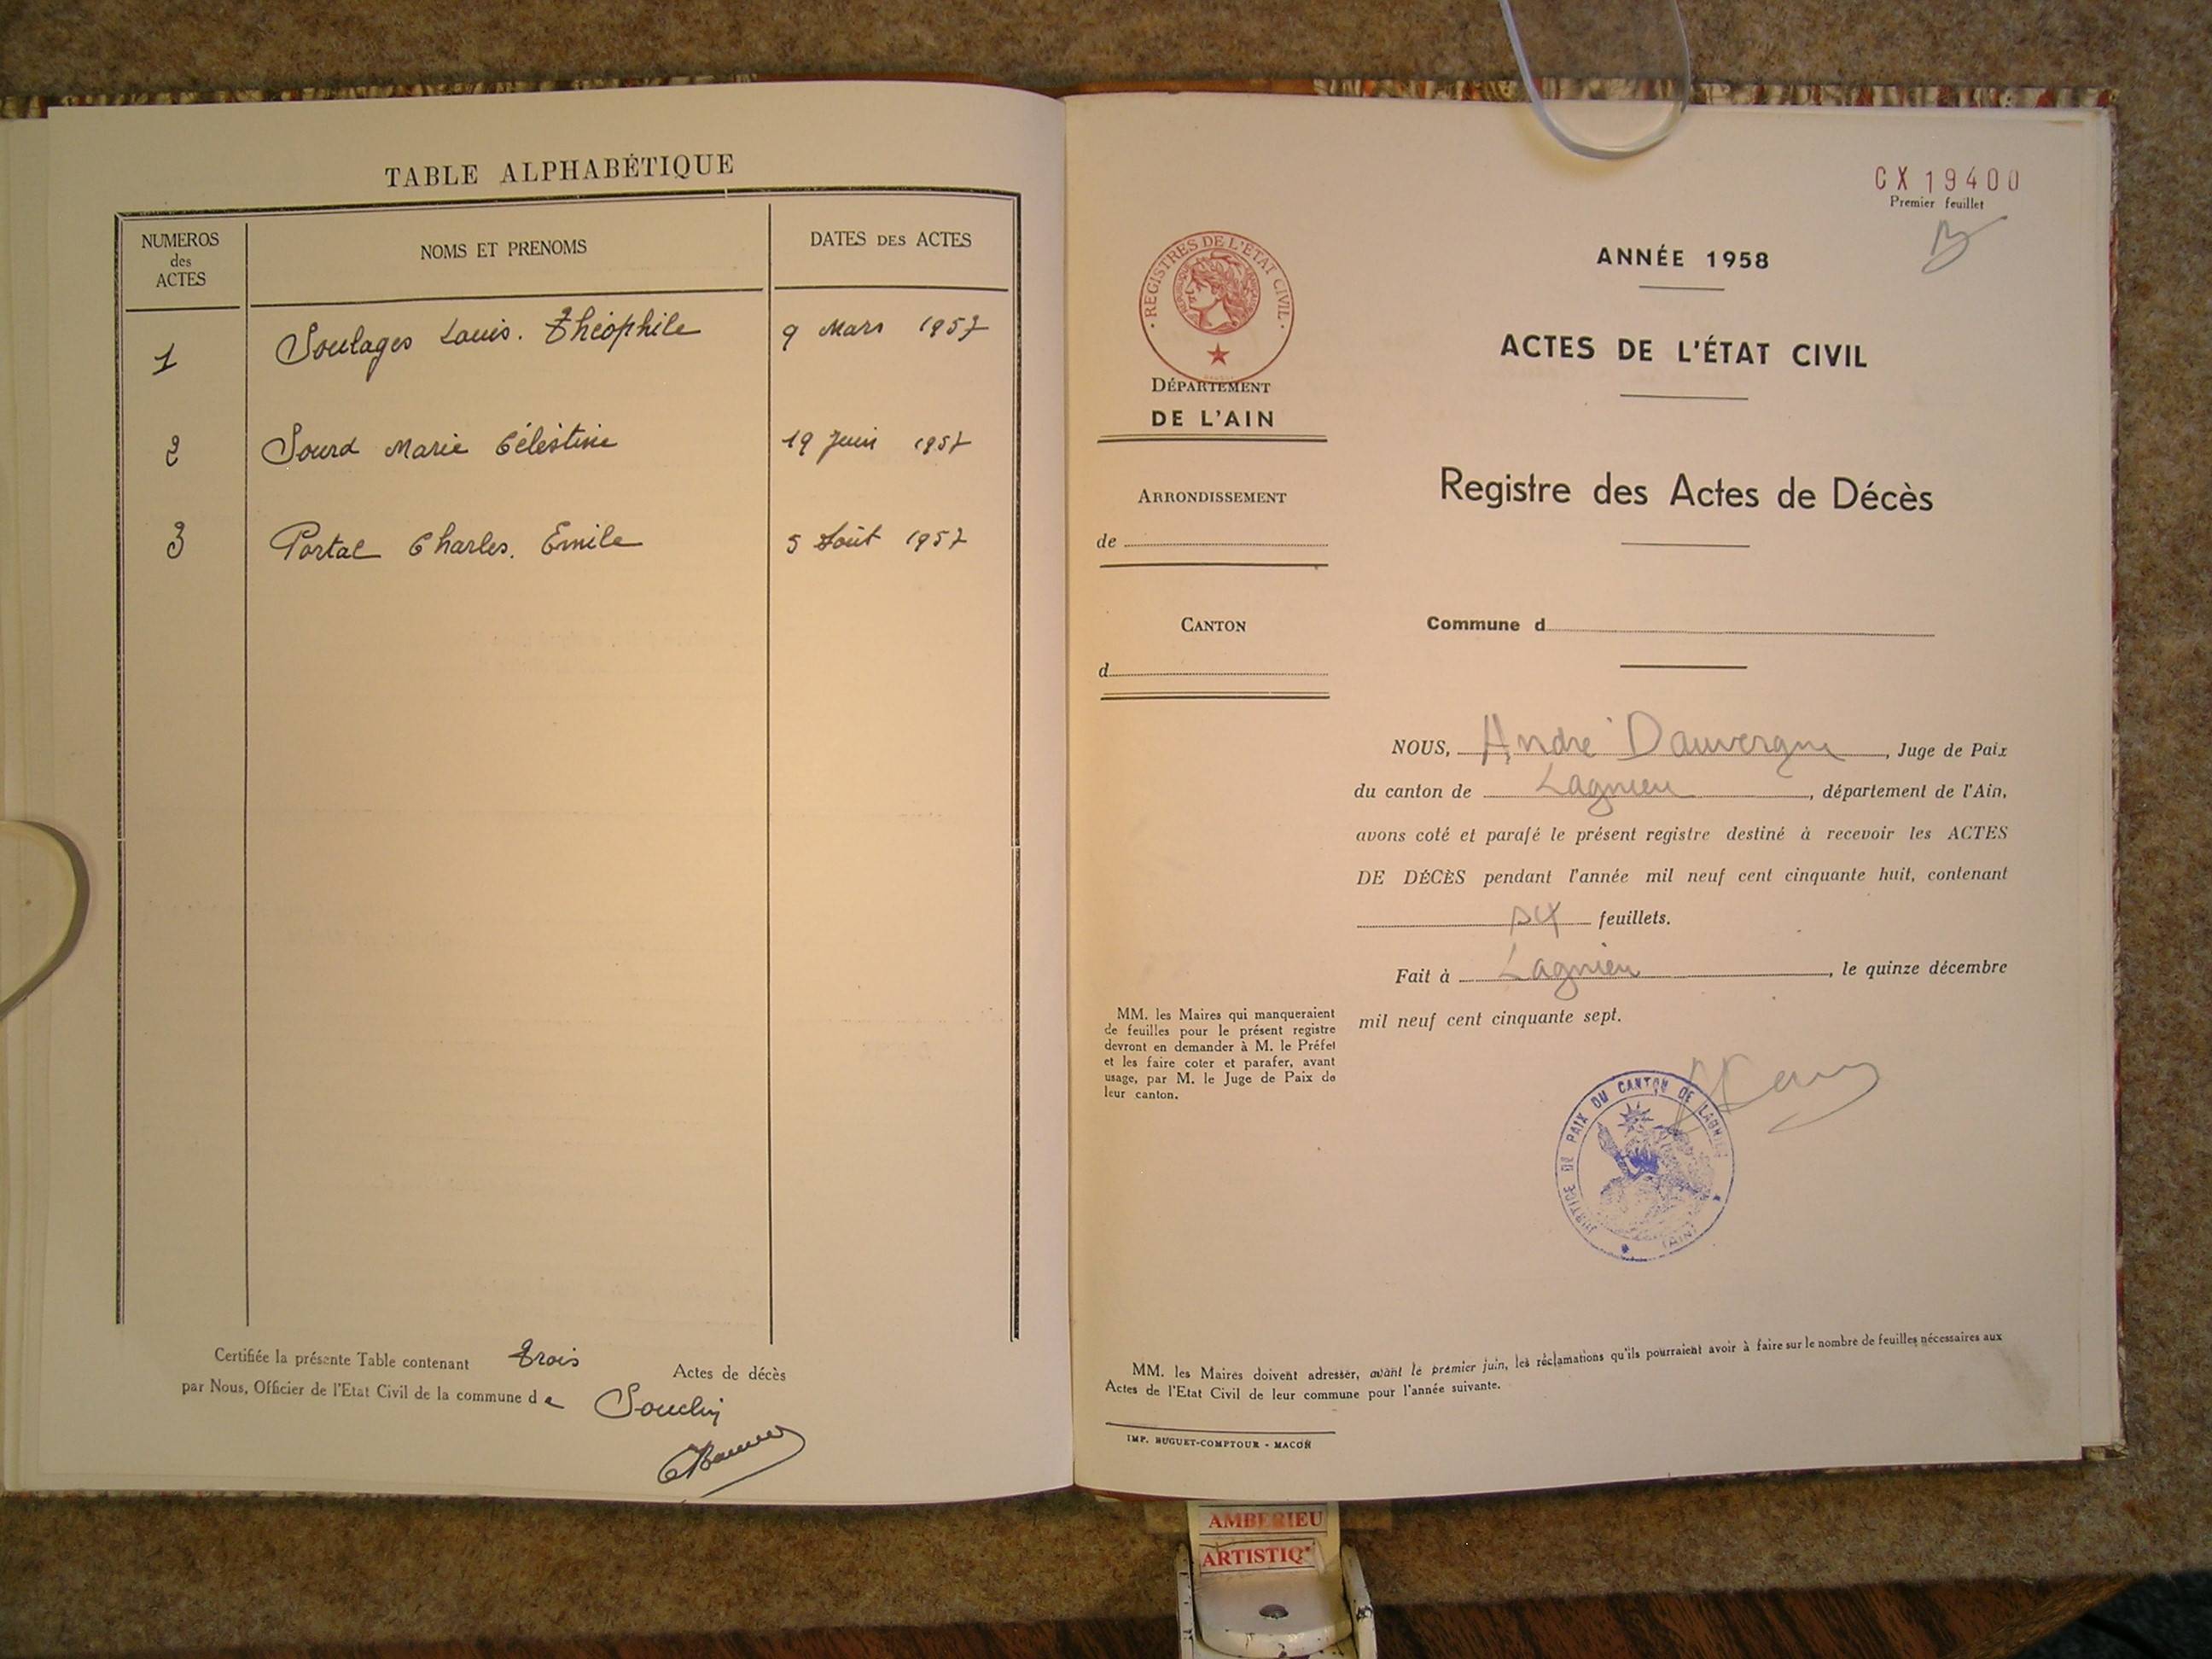 TABLE ALPHABÉTIQUE
NUMEROS des ACTES
NOMS ET PRENOMS
DATES DES ACTES
1 Soulages Louis. Théophile 9 Mars 1957
2 Sourd Marie Célestine 19 Juin 1957
3 Portal Charles. Emile 5 Août 1957
Certifiée la présente Table contenant Trois Actes de décès
par Nous, Officier de l'Etat Civil de la commune de Souclin
CX 19400
Premier feuillet
REGISTRES DE L'ÉTAT CIVIL
RÉPUBLIQUE FRANÇAISE
DÉPARTEMENT
DE L'AIN
ARRONDISSEMENT
de
CANTON
d
ANNÉE 1958
ACTES DE L'ÉTAT CIVIL
Registre des Actes de Décès
Commune d
NOUS, André Dauvergne, Juge de Paix
du canton de Lagnieu, département de l'Ain,
avons coté et parafé le présent registre destiné à recevoir les ACTES
DE DÉCÈS pendant l'année mil neuf cent cinquante huit, contenant
six feuillets.
Fait à Lagnieu, le quinze décembre
mil neuf cent cinquante sept.
MM. les Maires qui manqueraient
de feuilles pour le présent registre
devront en demander à M. le Préfet
et les faire coter et parafer, avant
usage, par M. le Juge de Paix de
leur canton.
JUSTICE DE PAIX DU CANTON DE LAGNIEU
(AIN)
MM. les Maires doivent adresser, avant le premier juin, les réclamations qu'ils pourraient avoir à faire sur le nombre de feuilles nécessaires aux
Actes de l'Etat Civil de leur commune pour l'année suivante.
IMP. BUGUET-COMPTOUR - MACON
AMBERIEU
ARTISTIQ